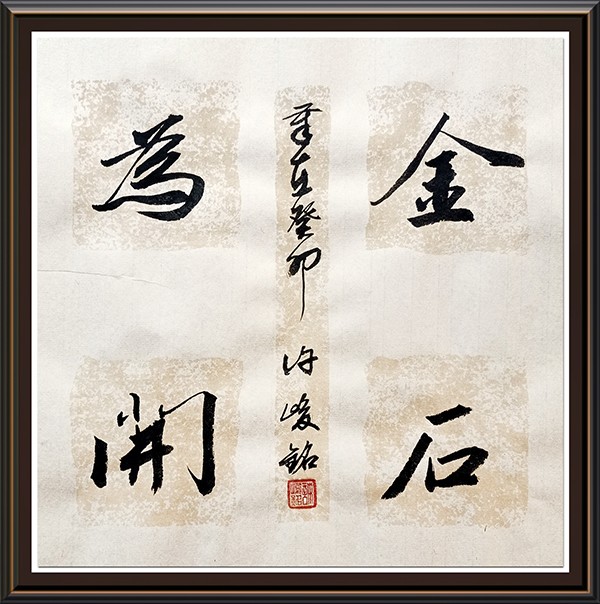 金石
為開
歲在癸卯 許峻銘